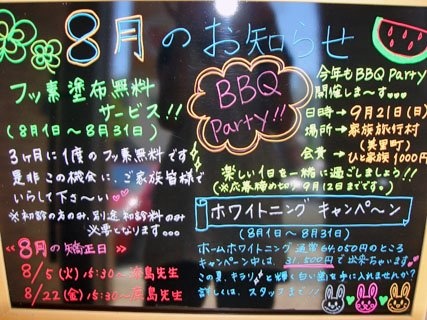 8月のお知らせ
フッ素塗布無料
サービス!!
(8月1日～8月31日)
3ヶ月に1度のフッ素無料です
是非この機会に、ご家族皆様で
いらして下さ～い
※初診の方のみ、別途初診料のみ
必要となります…
BBQ
Party!!
今年もBBQ Party
開催しま～す…
日時→9月21日(日)
場所→家族旅行村
(美里町)
会費→ひと家族1000円
楽しい1日を一緒に過ごしましょう!!
(※応募締め切り9月12日までです。)
《8月の矯正日》
8/5(火)15:30～鹿島先生
8/22(金)15:30～鹿島先生
ホワイトニング キャンペーン
(8月1日～8月31日)
ホームホワイトニング 通常64,050円のところ
キャンペーン中は、31,500円で出来ちゃいます
この夏、キラリと輝く白い歯を手に入れませんか?
詳しくは、スタッフまで!!